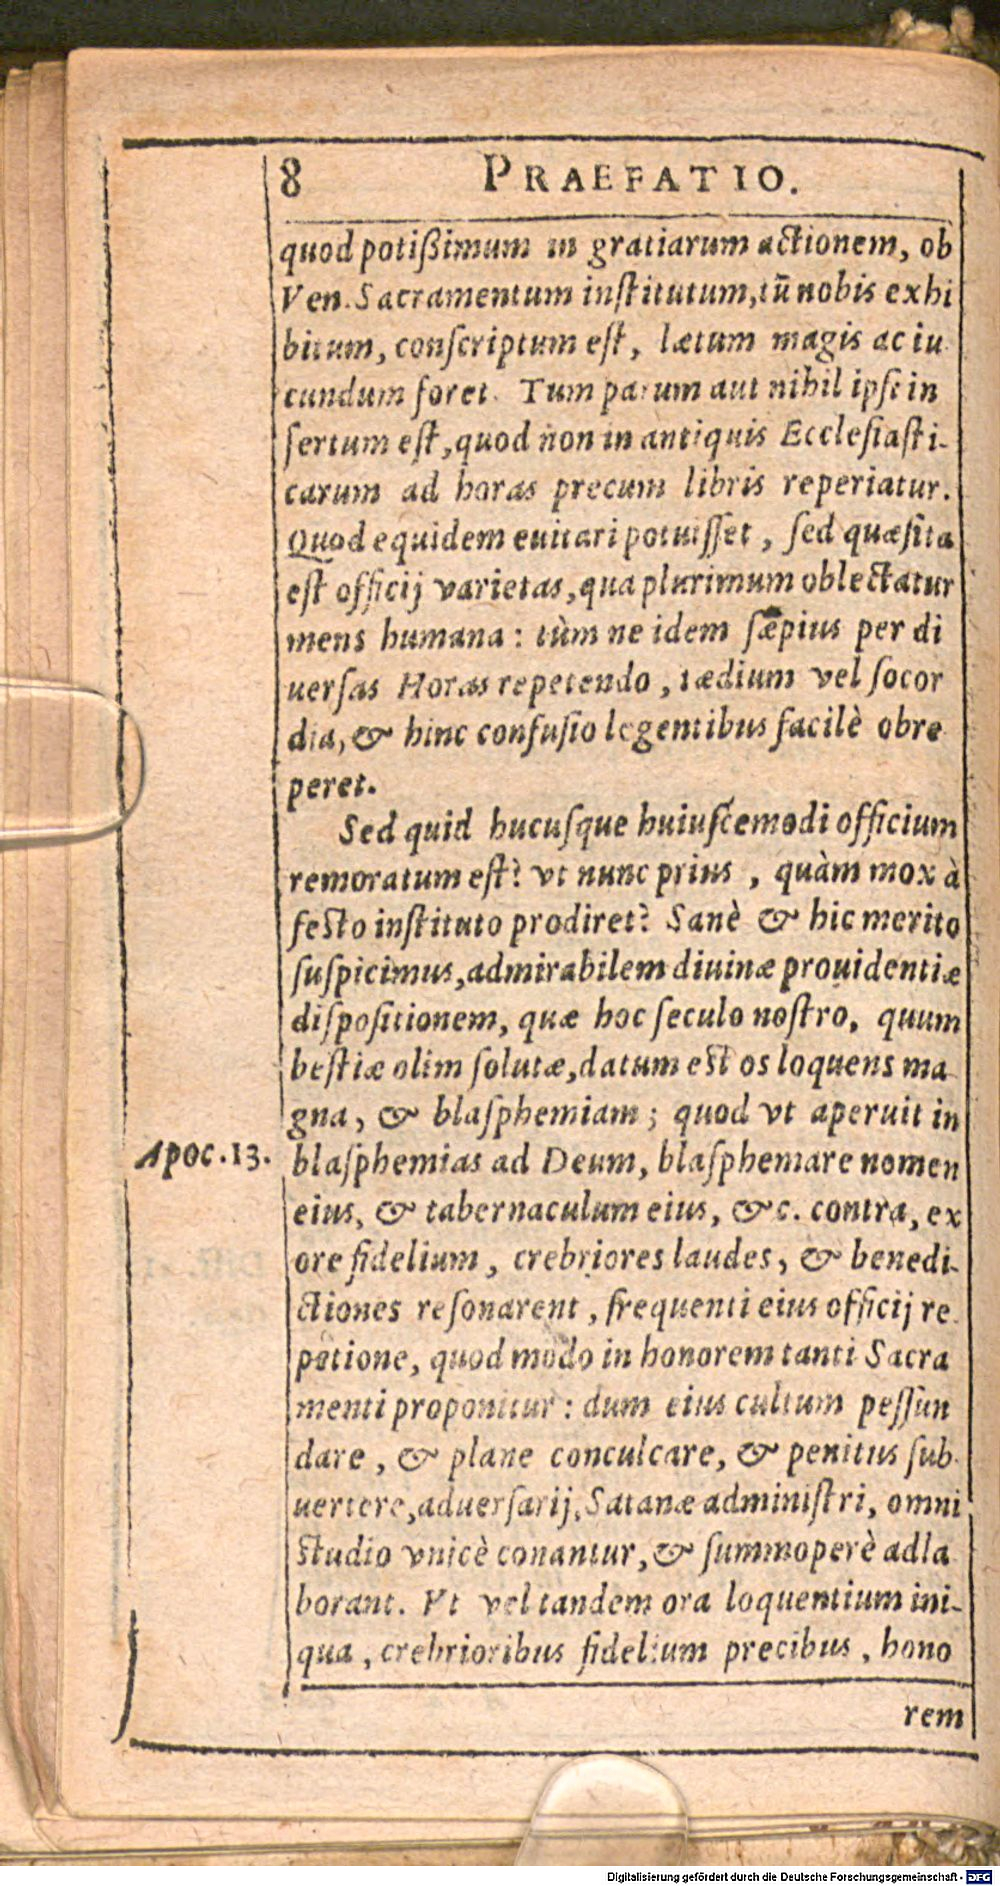 8 PRAEFATIO.
quod potißimum in gratiarum actionem, ob
Ven. Sacramentum inſtitutum, tũ nobis exhi
bitum, conſcriptum eſt, lætum magis ac iu
cundum foret. Tum parum aut nihil ipſi in
ſertum eſt, quod non in antiquis Eccleſiaſti-
carum ad horas precum libris reperiatur.
Quod equidem euitari potuiſſet, ſed quæſita
eſt officij varietas, qua plurimum oblectatur
mens humana: tùm ne idem ſæpius per di
uerſas Horas repetendo, tædium vel ſocor
dia, & hinc confuſio legentibus facilè obre
peret.
Sed quid hucuſque huiuſcemodi officium
remoratum eſt? vt nunc prius, quàm mox à
feſto inſtituto prodiret? Sanè & hic merito
ſuſpicimus, admirabilem diuinæ prouidentiæ
diſpoſitionem, quæ hoc ſeculo noſtro, quum
beſtiæ olim ſolutæ, datum eſt os loquens ma
gna, & blaſphemiam; quod vt aperuit in
Apoc. 13. blaſphemias ad Deum, blaſphemare nomen
eius, & tabernaculum eius, &c. contra, ex
ore fidelium, crebriores laudes, & benedi-
ctiones reſonarent, frequenti eius officij re
petione, quod modo in honorem tanti Sacra
menti proponitur: dum eius cultum peſſun
dare, & plane conculcare, & penitus ſub
uertere, aduerſarij, Satanæ adminiſtri, omni
ſtudio vnicè conantur, & ſummoperè adla
borant. Vt vel tandem ora loquentium ini-
qua, crebrioribus fidelium precibus, hono
rem
Digitalisierung gefördert durch die Deutsche Forschungsgemeinschaft - DFG